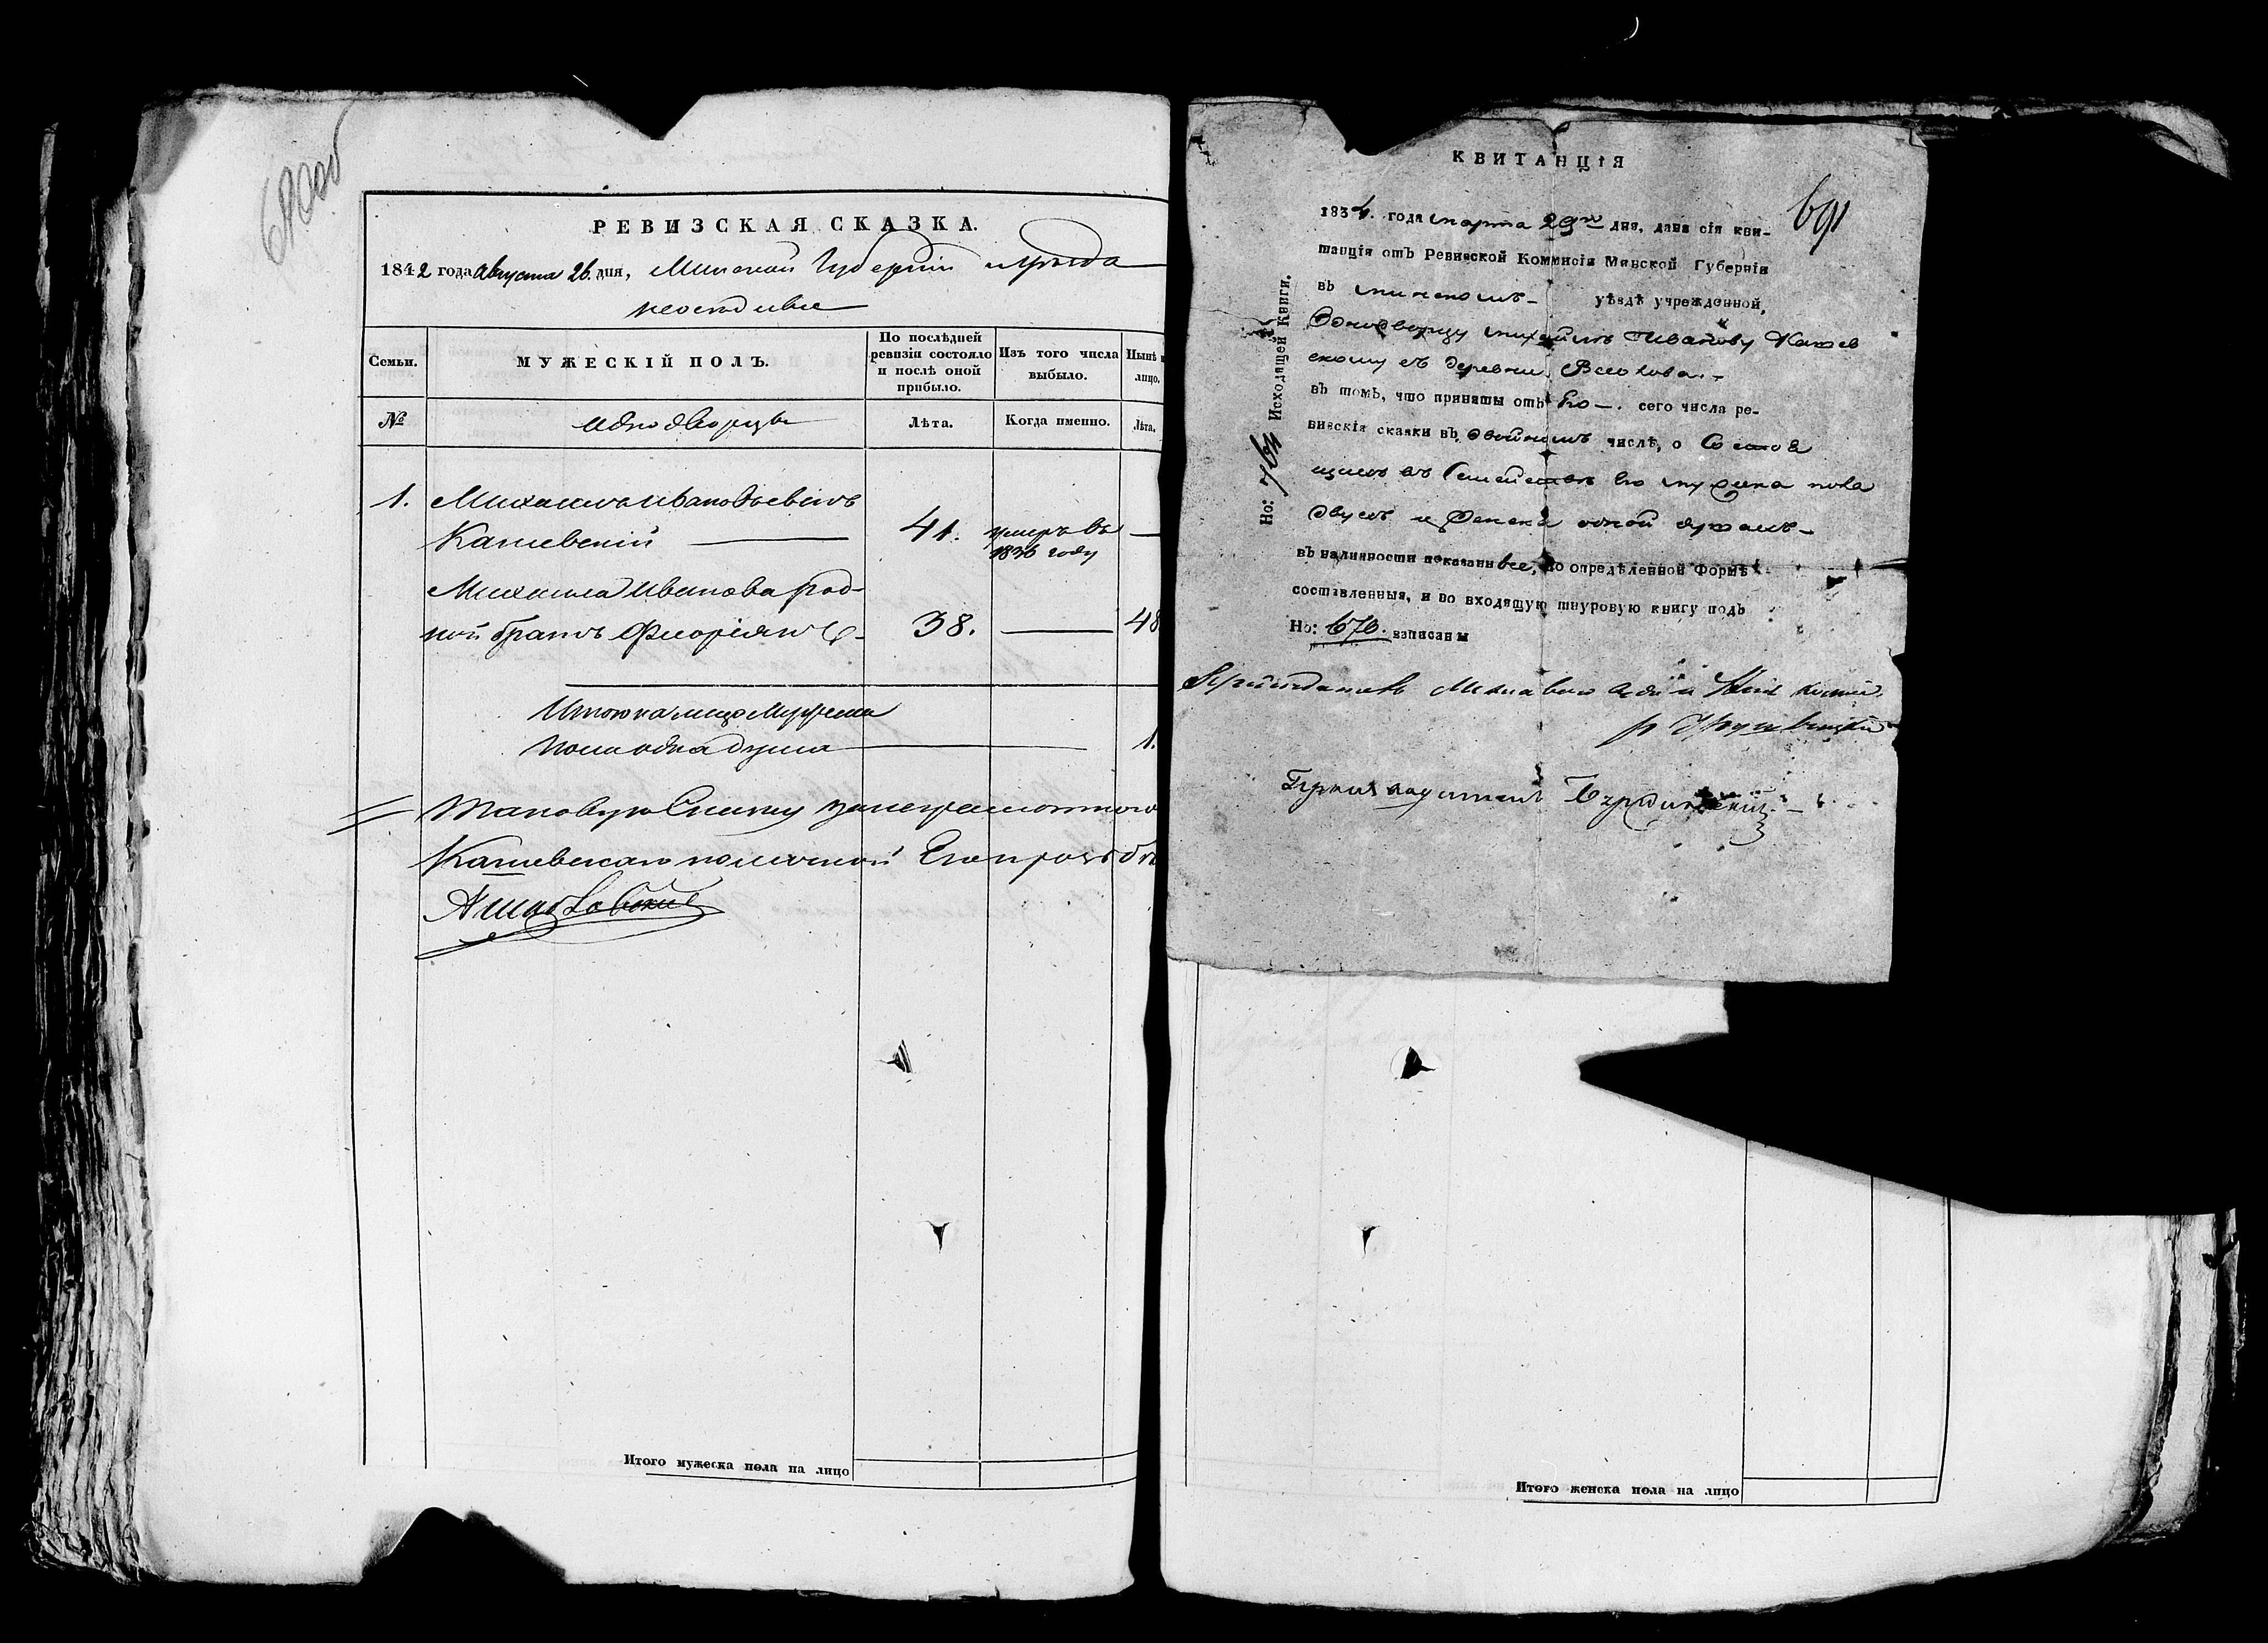 690об
РЕВИЗСКАЯ СКАЗКА.
1842 года Августа 26 дня, Минской Губерніи и уѣзда
Семьи.
МУЖЕСКІЙ ПОЛЪ.
По послѣдней ревизіи состояло и послѣ оной прибыло.
Изъ того числа выбыло.
Нынѣ на лицо.
№
однодворцы
Лѣта.
Когда именно.
Лѣта.
1. Михаилъ Ивановъ сынъ
Кашевскій — 41. умеръ въ 1836 году —
Михаила Иванова род-
ной братъ Флоріянъ 38. — 48
Итого на лицо Мужеска
пола одна душа — 1.
Таковую Сказку за неграмотного
Кашевскаго по личной Его прозьбѣ
Итого мужеска пола на лицо
КВИТАНЦІЯ
691
1834. года марта 29го дня, дана сія кви-
танція отъ Ревизской Коммисіи Минской Губерніи
въ минскомъ уѣздѣ учрежденной,
Однодворцу михаилу Иванову Кашев
скому съ деревни
въ томъ, что приняты отъ Его сего числа ре-
визскія сказки въ двойномъ числѣ, о Состоя
щихъ въ Семействѣ Его мужска пола
двухъ и женска одной душахъ
въ наличности показаны все, по опредѣленной Формѣ
составленныя, и во входящую шнуровую книгу подъ
Но: 670. записаны
Но: Исходящей Книги.
Итого женска пола на лицо